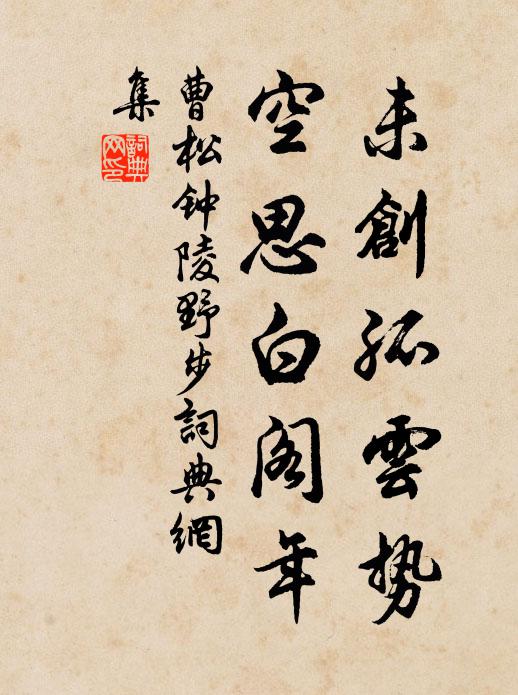 未創孤雲势
空思白阁年
曹松钟陵野步詞典網
集
詞典
网印